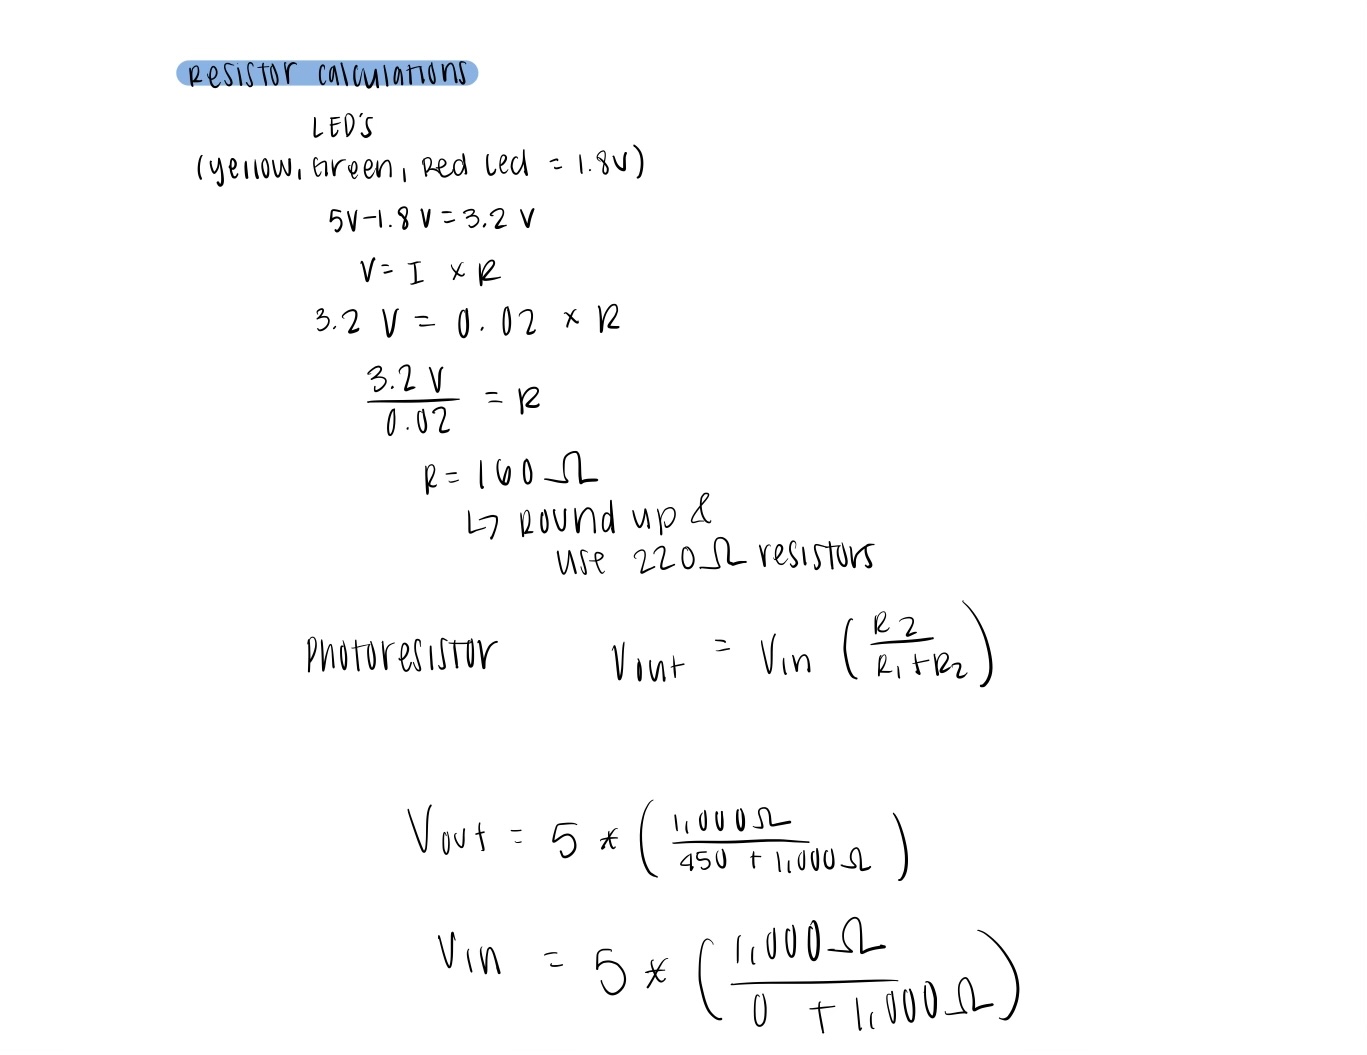 Resistor calculations
LED's
(yellow, Green, Red Led = 1.8V)
5V-1.8 V = 3.2 V
V = I × R
3.2 V = 0.02 × R
3.2 V / 0.02 = R
R = 160 Ω
↳ Round up &
use 220 Ω resistors
Photoresistor Vout = Vin (R2 / R1+R2)
Vout = 5 * (1,000Ω / 450 + 1,000Ω)
Vin = 5 * (1,000Ω / 0 + 1,000Ω)